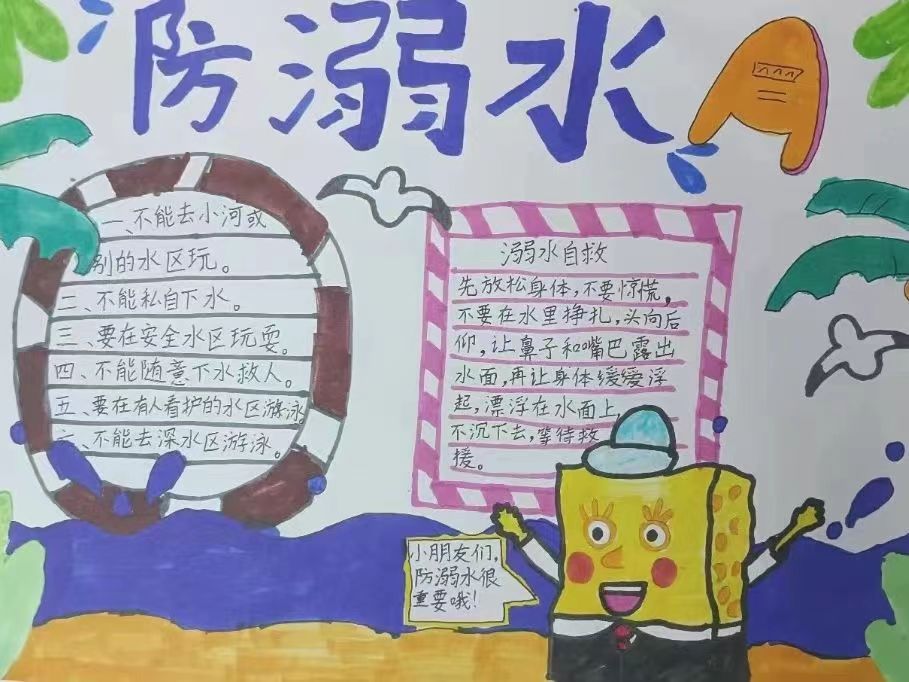 防溺水
一、不能去小河或
别的水区玩。
二、不能私自下水。
三、要在安全水区玩耍。
四、不能随意下水救人。
五、要在有人看护的水区游泳
六、不能去深水区游泳。
溺水自救
先放松身体，不要惊慌，
不要在水里挣扎，头向后
仰，让鼻子和嘴巴露出
水面，再让身体缓缓浮
起，漂浮在水面上，
不沉下去，等待救
援。
小朋友们，
防溺水很
重要哦！